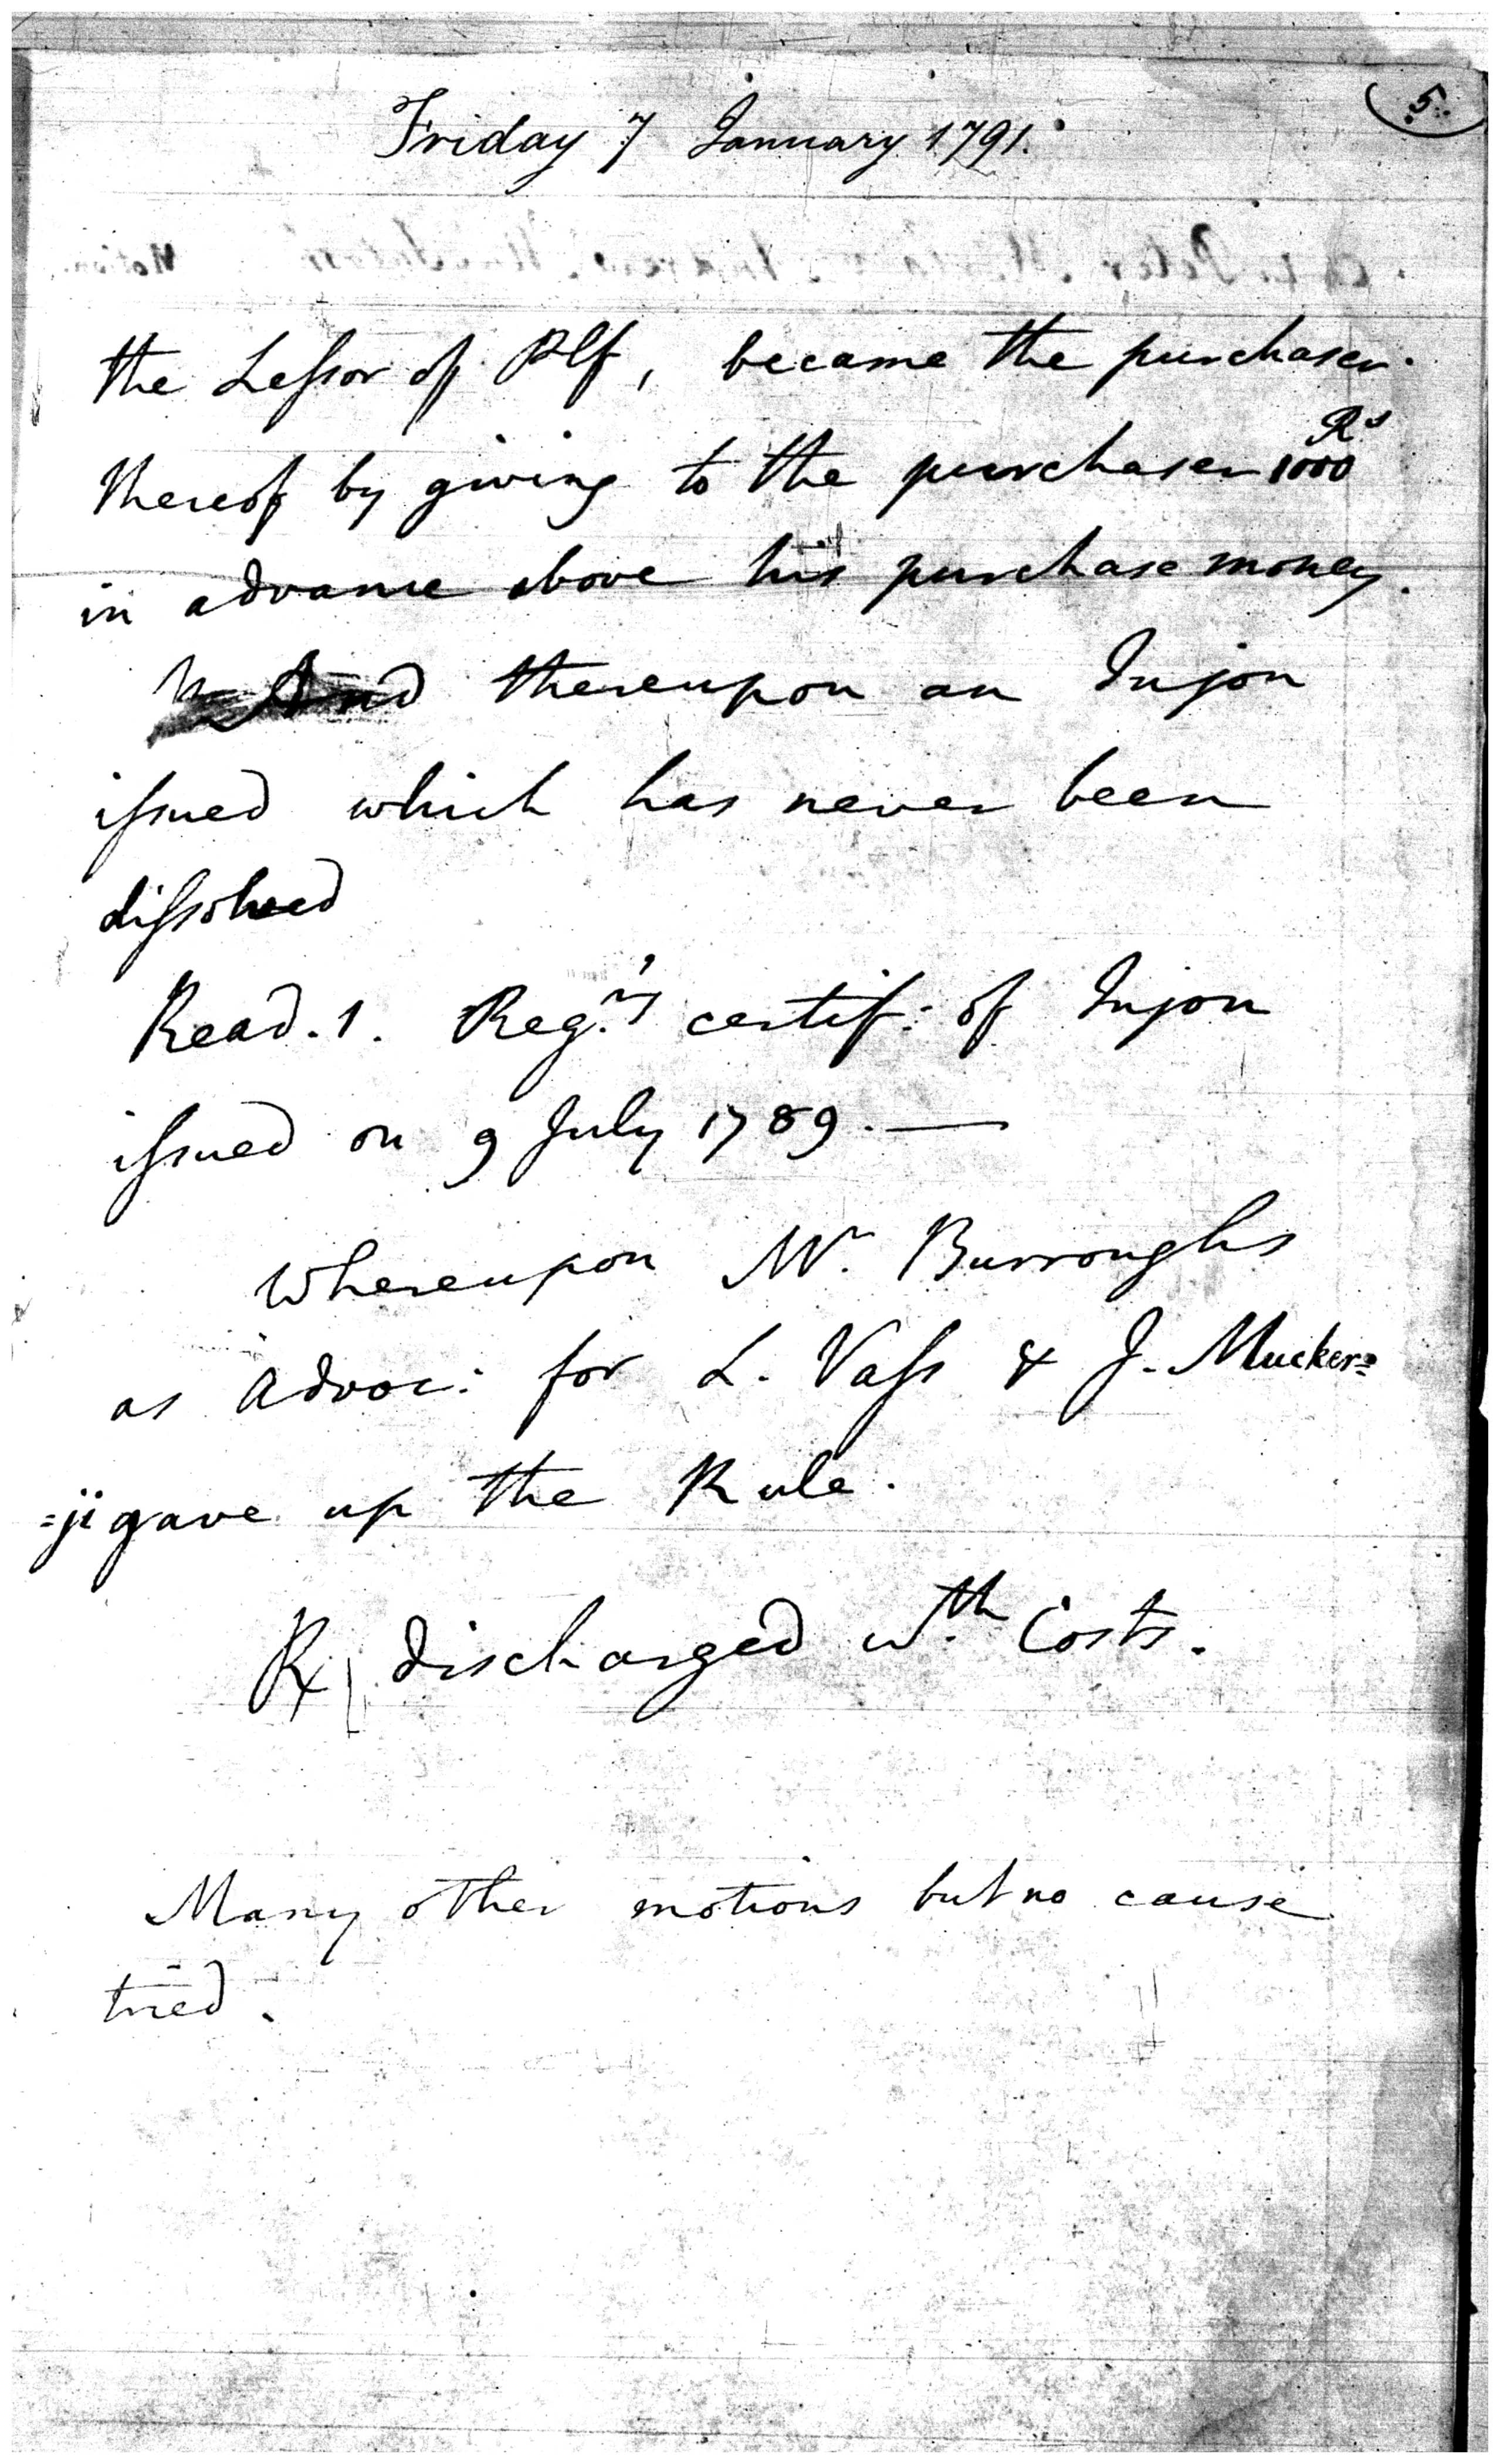 5.
Friday 7 January 1791.
the Leſsor of Plf, became the purchaser
thereof by giving to the purchaser 1000 Rs
in advance above his purchase money.
And thereupon an Injon
iſsued which has never been
diſsolved
Read. 1. Regr's certif: of Injon
iſsued on 9 July 1789. —
Whereupon Mr. Burroughs
as Advoc: for L. Vaſs & J. Mucker=
=ji gave up the Rule.
R discharged wth. Costs.
Many other motions but no cause
tried.